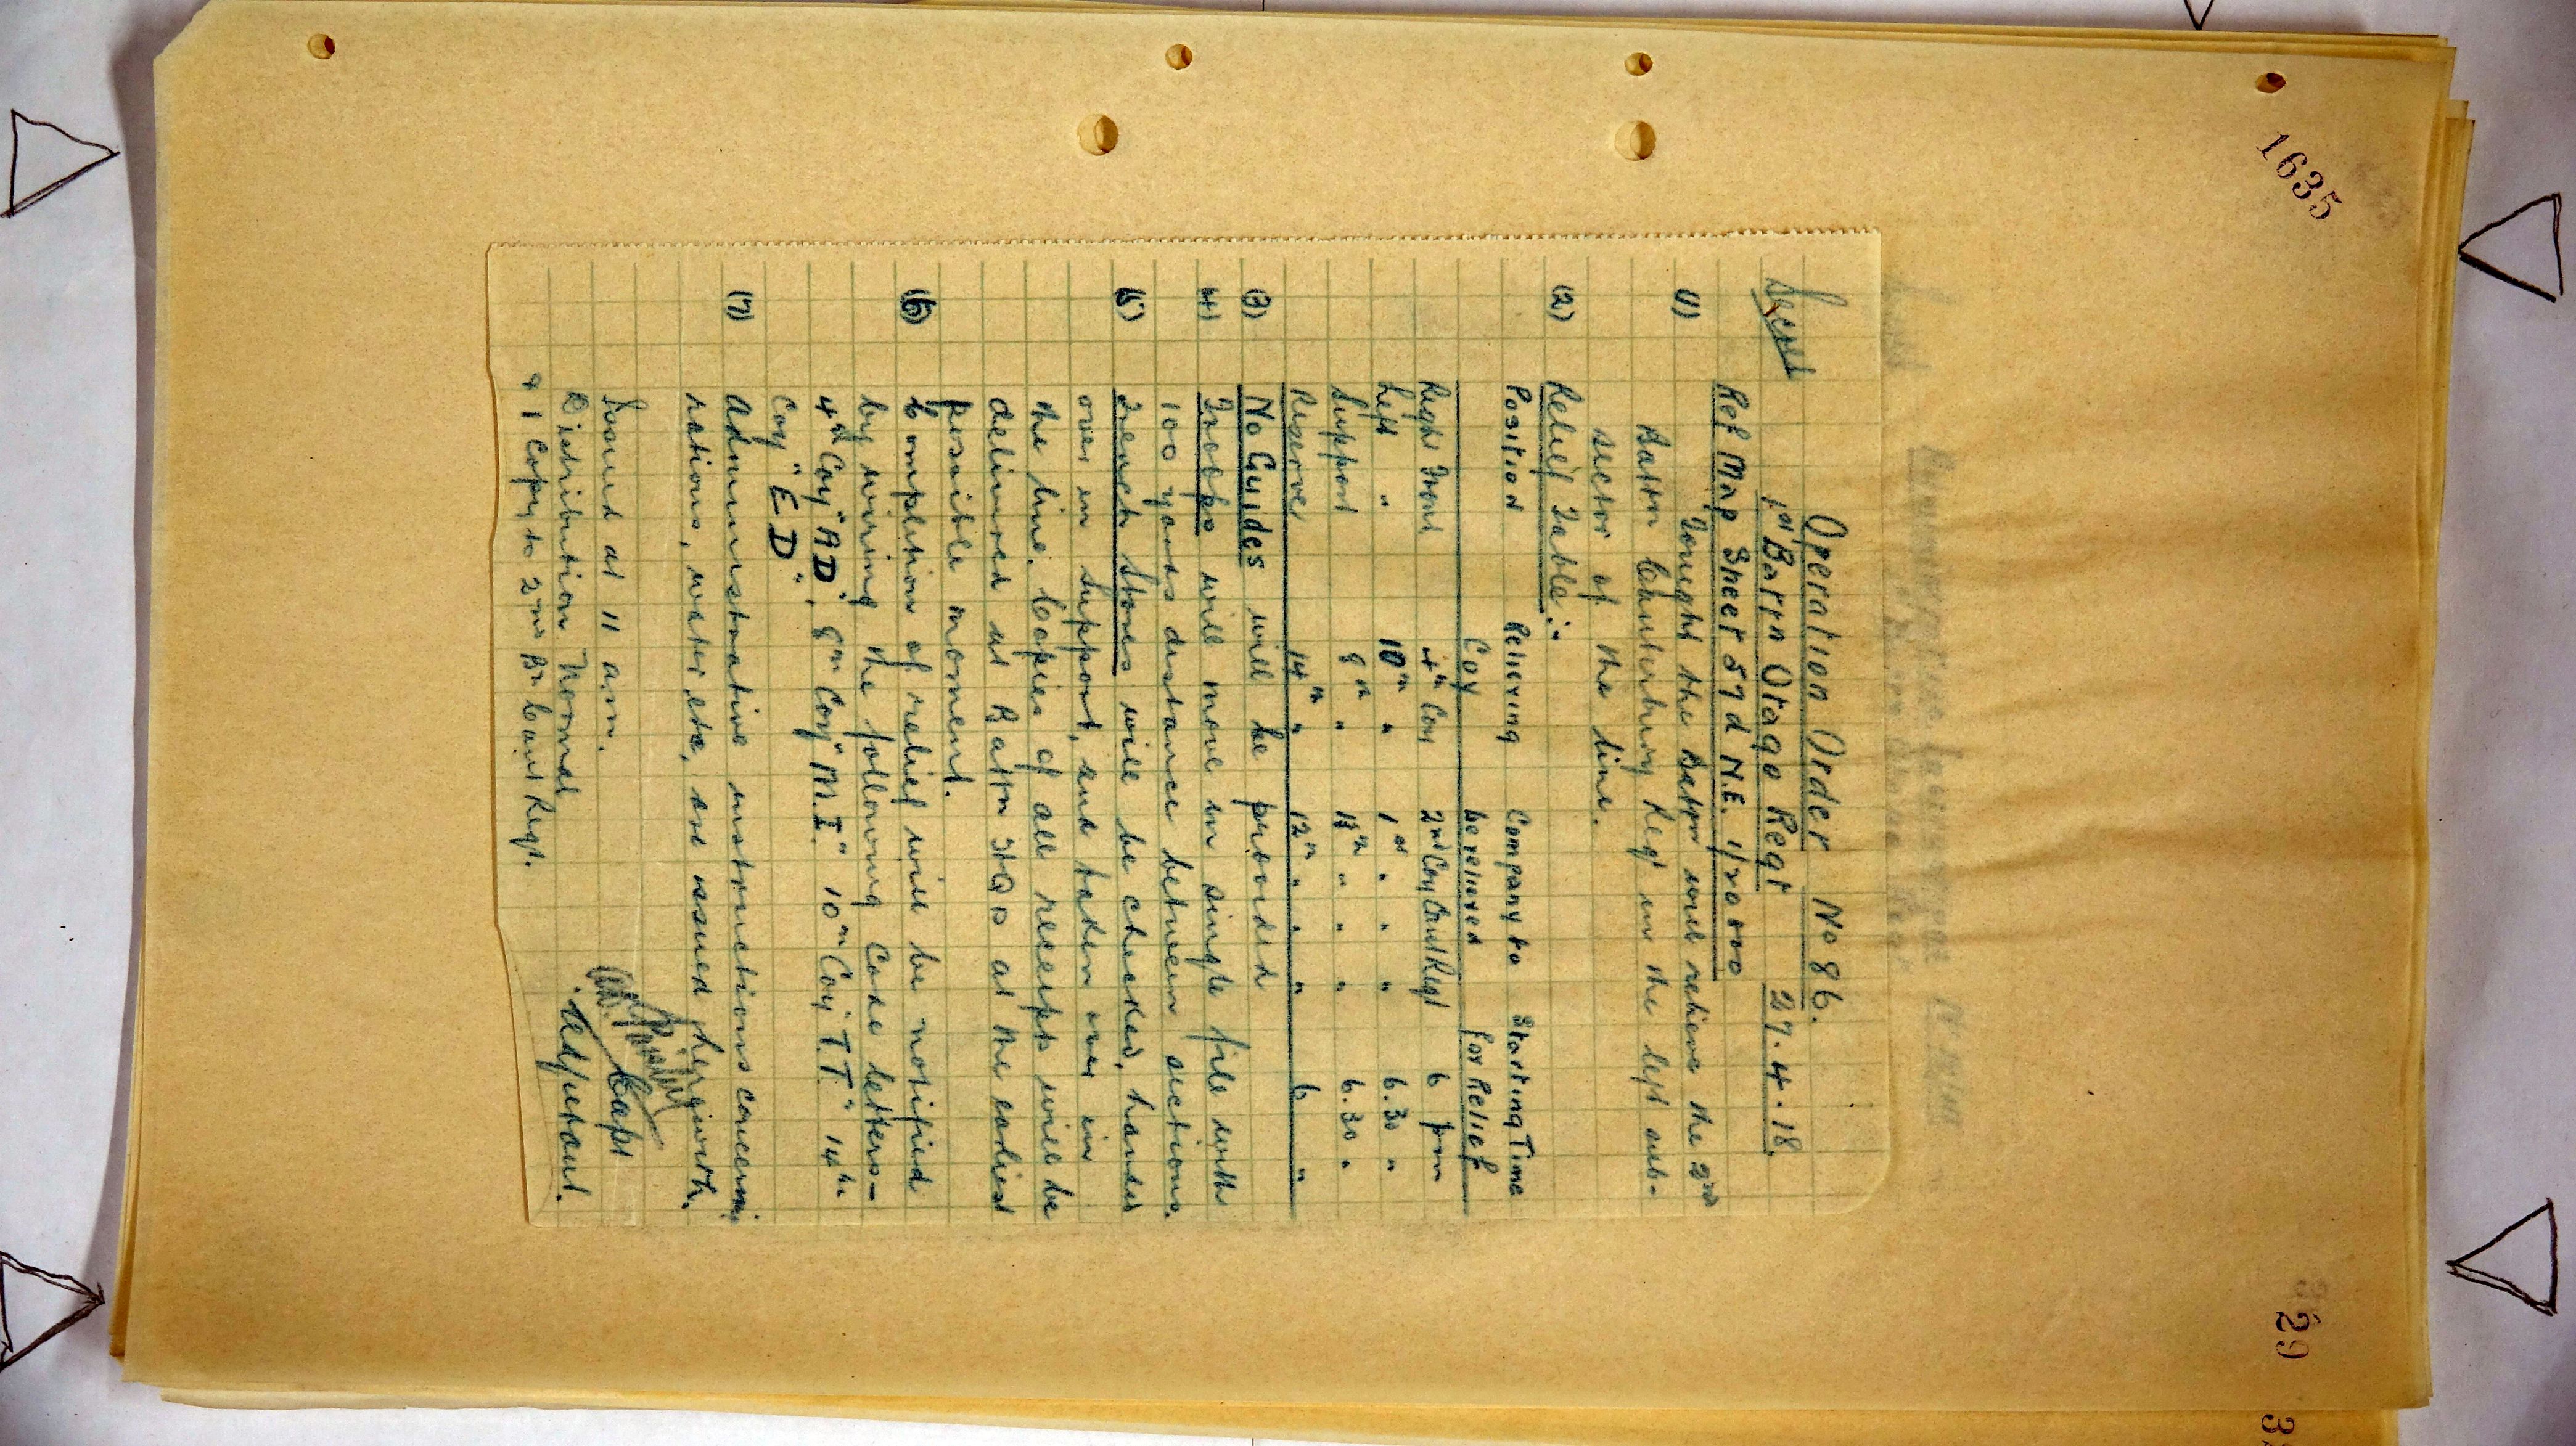 1635
Secret
Operation Order No 86.
1st Battn Otago Regt 27.4.18.
Ref Map Sheet 57d N.E. 1/20000
(1) Tonight the Battn will relieve the 2nd
Battn Canterbury Regt in the left sub-
sector of the line.
(2) Relief Table:-
Position Relieving Company to Starting Time
Coy be relieved for Relief
Right Front 4th Coy 2nd Coy Cant Regt 6 pm
Left " 10th " 1st " " " 6.30 "
Support 8th " 13th " " " 6.30 "
Reserve 14th " 12th " " " 6 "
(3) No Guides will be provided
(4) Troops will move in single file with
100 yards distance between sections.
(5) Trench Stores will be checked, handed
over in Support, and taken over in
the line. Copies of all receipts will be
delivered at Battn HQrs at the earliest
possible moment.
(6) Completion of relief will be notified
by wiring the following Code letters -
4th Coy "AD", 8th Coy "M.I." 10th Coy "T.T." 14th
Coy "ED".
(7) Administrative instructions concerning
rations, water, etc, are issued herewith.
Issued at 11 am.
Capt
Distribution Normal
Adjutant.
& 1 Copy to 2nd Bn Cant Regt.
29